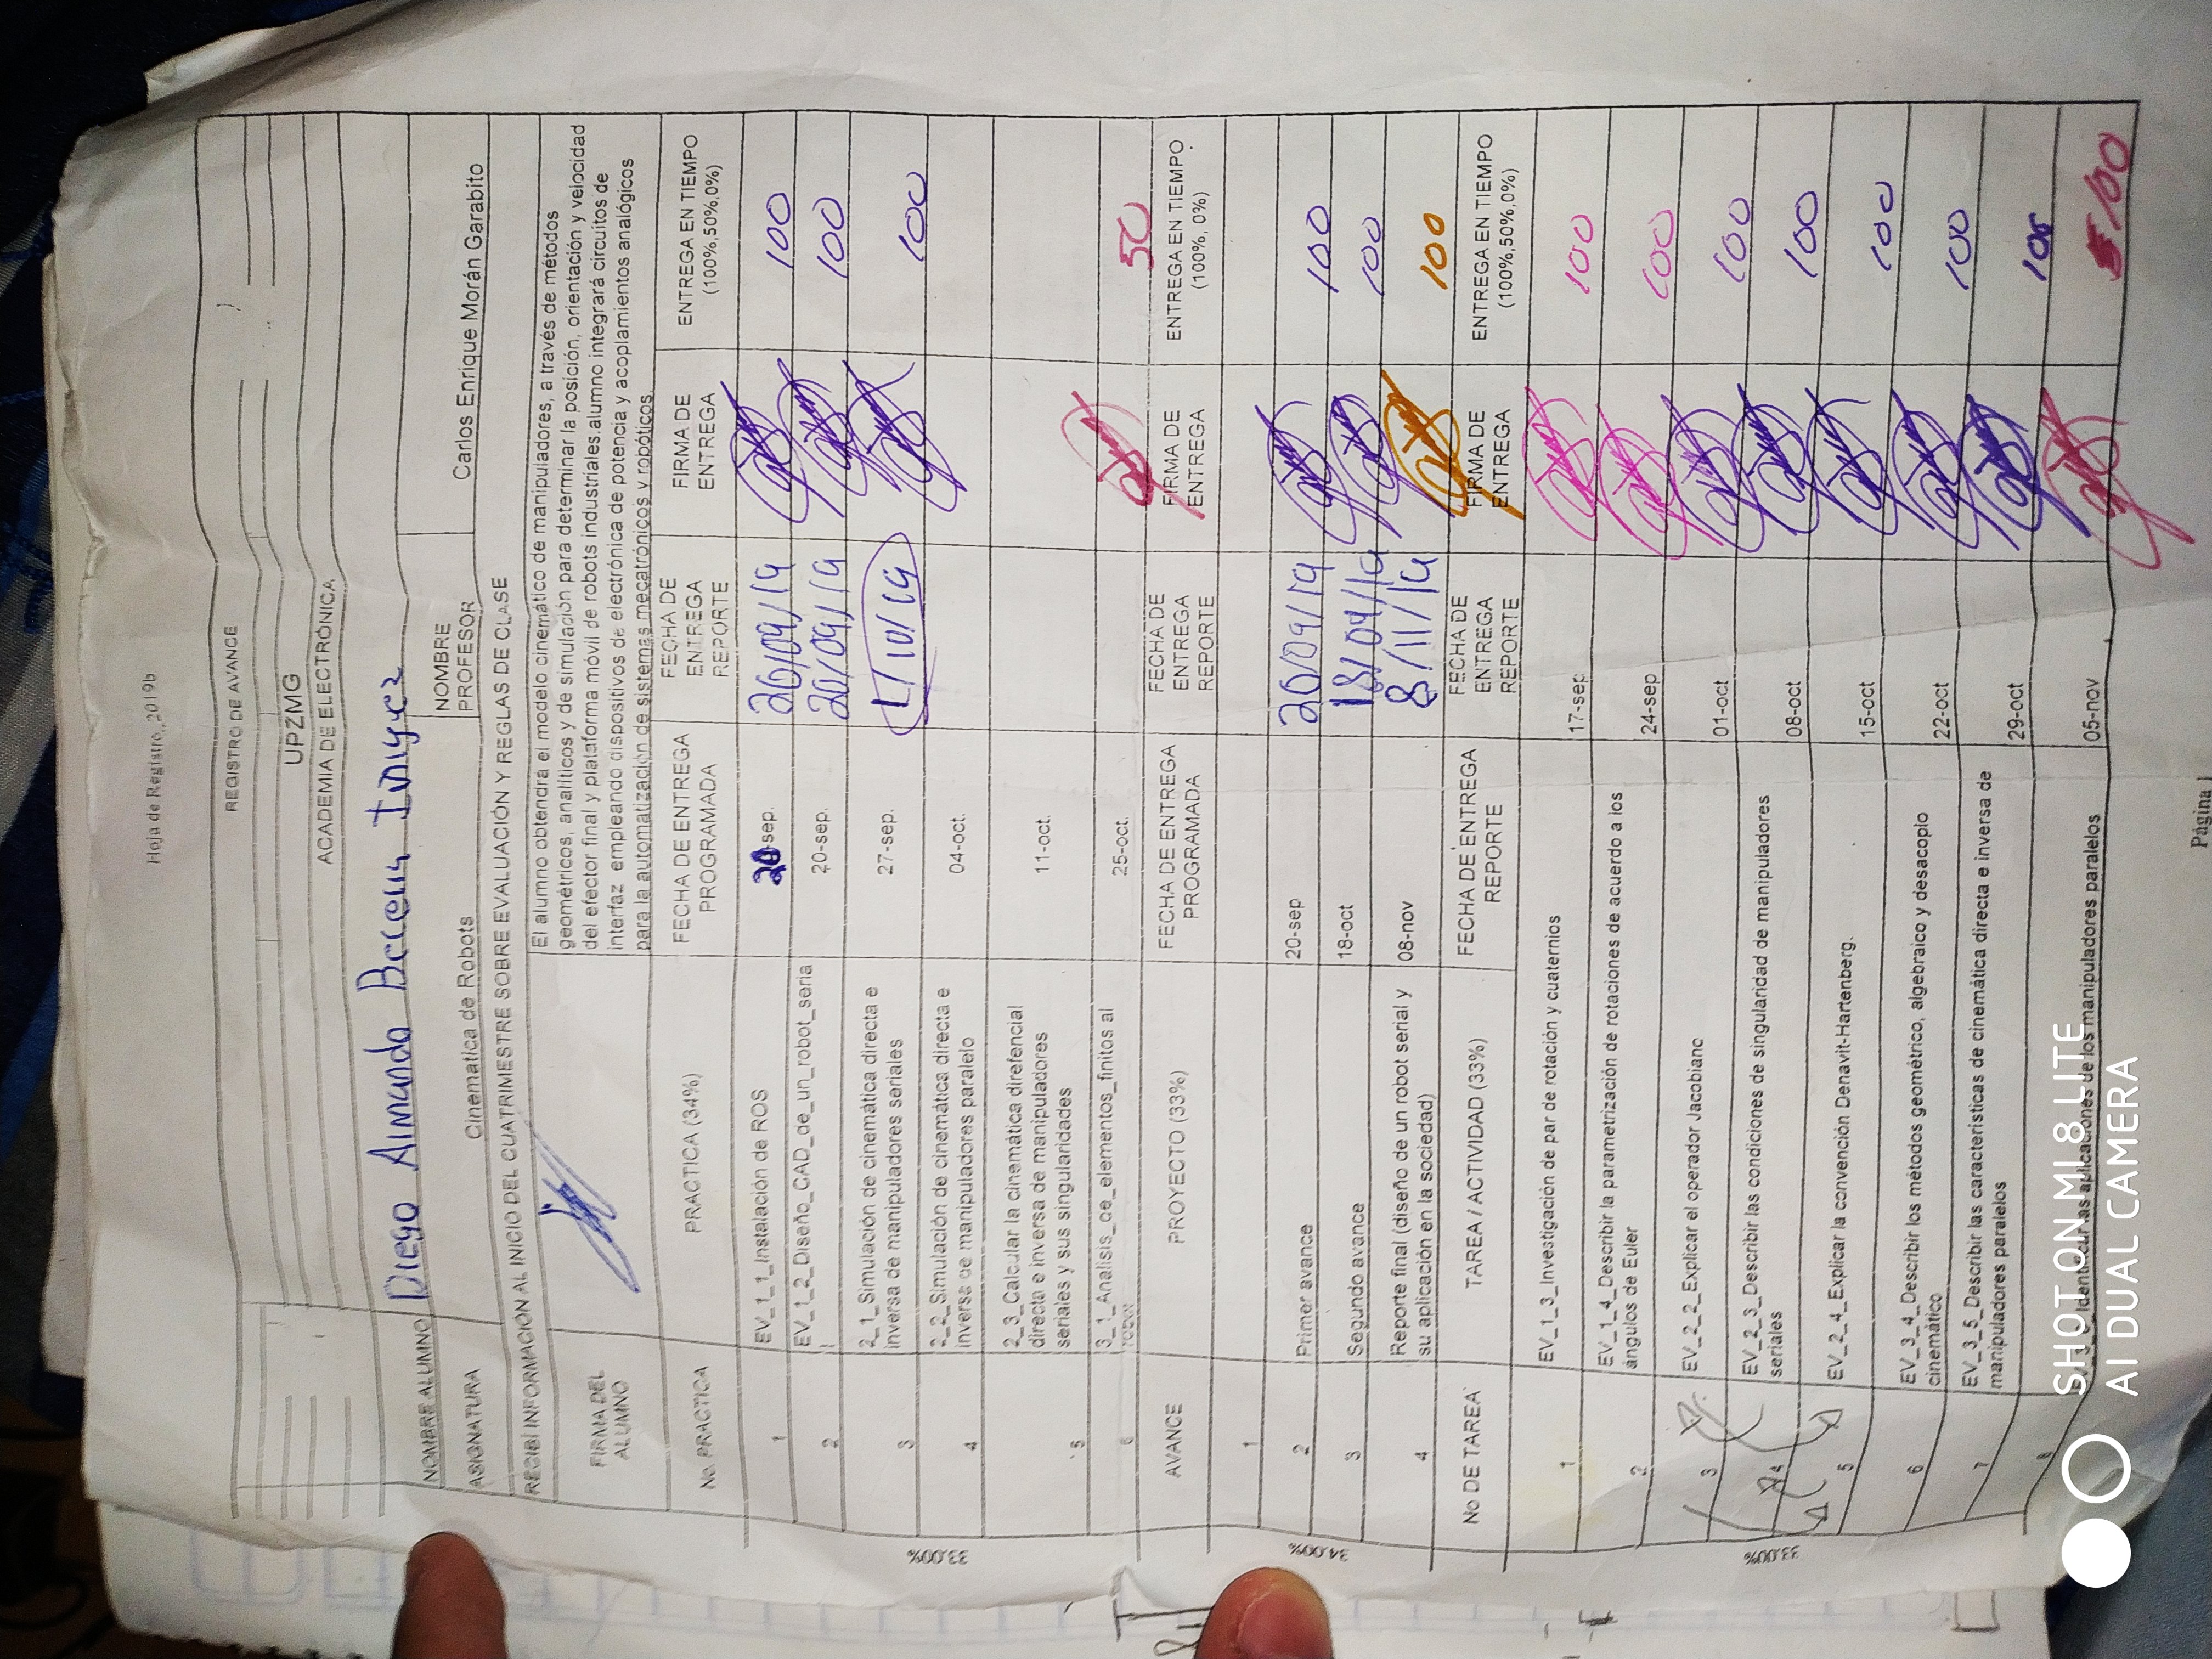 Hoja de Registro_2019b
REGISTRO DE AVANCE
UPZMG
ACADEMIA DE ELECTRÓNICA
NOMBRE ALUMNO Diego Armando Becerra Iniguez
ASIGNATURA Cinematica de Robots NOMBRE PROFESOR Carlos Enrique Morán Garabito
RECIBÍ INFORMACIÓN AL INICIO DEL CUATRIMESTRE SOBRE EVALUACIÓN Y REGLAS DE CLASE
FIRMA DEL ALUMNO
El alumno obtendra el modelo cinemático de manipuladores, a través de métodos
geométricos, analíticos y de simulación para determinar la posición, orientación y velocidad
del efector final y plataforma móvil de robots industriales.alumno integrará circuitos de
interfaz empleando dispositivos de electrónica de potencia y acoplamientos analógicos
para la automatización de sistemas mecatrónicos y robóticos.
No. PRACTICA PRACTICA (34%) FECHA DE ENTREGA PROGRAMADA FECHA DE ENTREGA REPORTE FIRMA DE ENTREGA ENTREGA EN TIEMPO (100%,50%,0%)
33.00%
1 EV_1_1_Instalación de ROS 20-sep. 20/09/19 100
2 EV_1_2_Diseño_CAD_de_un_robot_serial 20-sep. 20/09/19 100
3 2_1_Simulación de cinemática directa e inversa de manipuladores seriales 27-sep. 1/10/19 100
4 2_2_Simulación de cinemática directa e inversa de manipuladores paralelo 04-oct.
5 2_3_Calcular la cinemática direfencial directa e inversa de manipuladores seriales y sus singularidades 11-oct.
6 3_1_Analisis_de_elementos_finitos al robot 25-oct. 50
AVANCE PROYECTO (33%) FECHA DE ENTREGA PROGRAMADA FECHA DE ENTREGA REPORTE FIRMA DE ENTREGA ENTREGA EN TIEMPO (100%, 0%)
34.00%
1
2 Primer avance 20-sep 20/09/19 100
3 Segundo avance 18-oct 18/09/19 100
4 Reporte final (diseño de un robot serial y su aplicación en la sociedad) 08-nov 8/11/19 100
No DE TAREA TAREA / ACTIVIDAD (33%) FECHA DE ENTREGA REPORTE FECHA DE ENTREGA REPORTE FIRMA DE ENTREGA ENTREGA EN TIEMPO (100%,50%,0%)
33.00%
1 EV_1_3_Investigación de par de rotación y cuaternios 17-sep 100
2 EV_1_4_Describir la parametrización de rotaciones de acuerdo a los ángulos de Euler 24-sep 100
3 EV_2_2_Explicar el operador Jacobiano 01-oct 100
4 EV_2_3_Describir las condiciones de singularidad de manipuladores seriales 08-oct 100
5 EV_2_4_Explicar la convención Denavit-Hartenberg. 15-oct 100
6 EV_3_4_Describir los métodos geométrico, algebraico y desacoplo cinemático 22-oct 100
7 EV_3_5_Describir las características de cinemática directa e inversa de manipuladores paralelos 29-oct 100
8 Identificar las aplicaciones de los manipuladores paralelos 05-nov 100
SHOT ON MI 8 LITE
AI DUAL CAMERA
Página 1